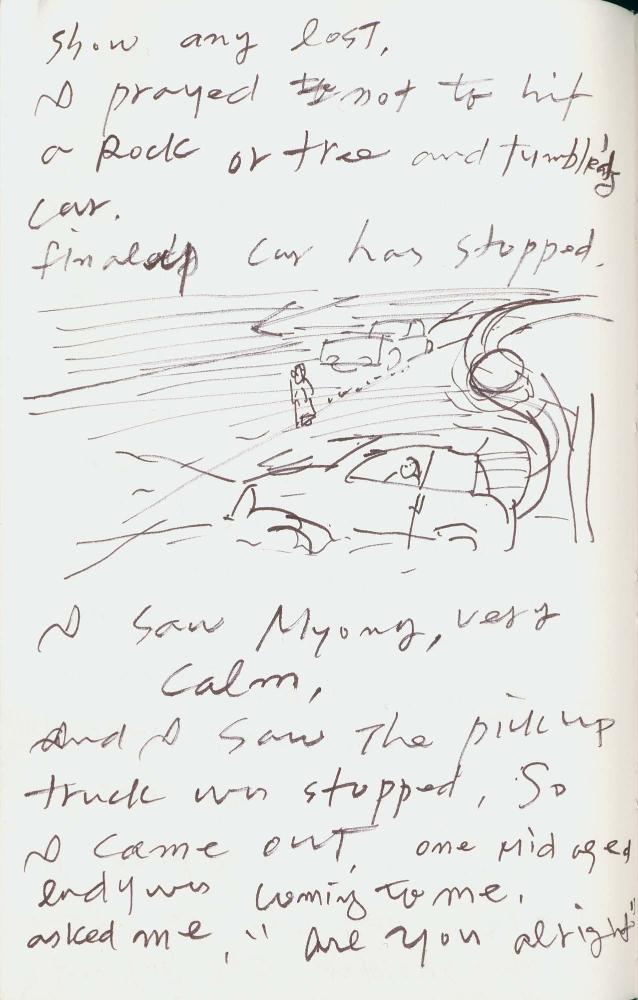 show any lost,
I prayed not to hit
a Rock or tree and tumbl
car.
car has stopped.
I saw Myong, very
calm,
And I saw The pick up
truck was stopped, So
I came out, one Mid aged
was coming to me.
asked me, "Are you alright"